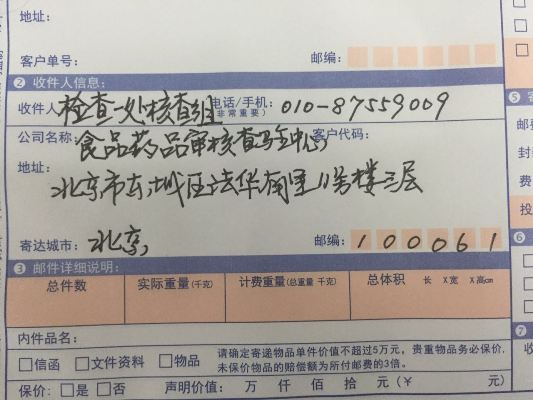 地址:
客户单号: 邮编:
❷ 收件人信息:
收件人 检查一处核查组 电话/手机: 010-87559009
(非常重要)
公司名称: 食品药品审核查验中心 客户代码:
地址:
北京市东城区法华南里11号楼三层
寄达城市: 北京 邮编: 100061
❸ 邮件详细说明:
总件数 实际重量(千克) 计费重量(总重量 千克) 总体积 长 X宽 X高cm
内件品名:
□信函 □文件资料 □物品 请确定寄递物品单件价值不超过5万元,贵重物品务必保价,
未保价物品的赔偿额为所付邮费的3倍。
保价: □是 □否 声明价值: 万 仟 佰 拾 元(¥ 元)
❺
邮
封
费
投
❻
❼
收